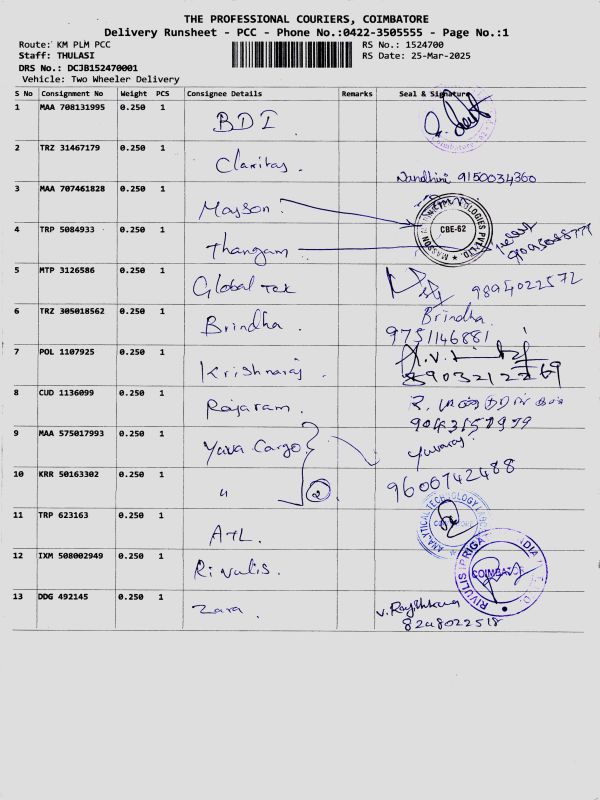 THE PROFESSIONAL COURIERS, COIMBATORE
Delivery Runsheet - PCC - Phone No.:0422-3505555 - Page No.:1
Route: KM PLM PCC
RS No.: 1524700
Staff: THULASI
RS Date: 25-Mar-2025
DRS No.: DCJB152470001
Vehicle: Two Wheeler Delivery
S No Consignment No Weight PCS Consignee Details Remarks Seal & Signature
1 MAA 708131995 0.250 1 BDI
2 TRZ 31467179 0.250 1 Claritas. Nandhini 9150034360
3 MAA 707461828 0.250 1 Mayson.
CBE-62
4 TRP 5084933 0.250 1 Thangam.
5 MTP 3126586 0.250 1 Global Tex 9894022572
6 TRZ 305018562 0.250 1 Brindha. Brindha.
9751146881
7 POL 1107925 0.250 1 Krishnaraj.
8903212269
8 CUD 1136099 0.250 1 Rajaram.
9043157979
9 MAA 575017993 0.250 1 Yuva Cargo Yuvaraj
9600742488
10 KRR 50163302 0.250 1 " 2
11 TRP 623163 0.250 1 ATL.
ANALYTICAL TECHNOLOGY
12 IXM 508002949 0.250 1 Rivulis.
RIVULIS IRRIGA DIA
COIMBATORE
13 DDG 492145 0.250 1 Zara.
8248022518